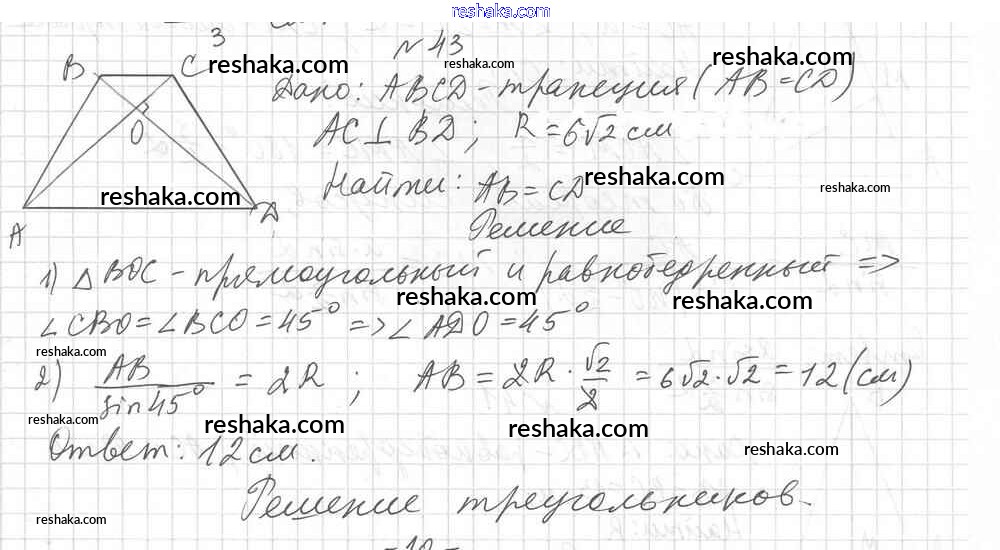 reshaka.com
№ 43
B C
reshaka.com
reshaka.com
reshaka.com
Дано: ABCD - трапеция (AB = CD)
O
AC ⊥ BD; R = 6√2 см
reshaka.com
Найти: AB = CD
reshaka.com
reshaka.com
A D
Решение
1) △ BOC - прямоугольный и равнобедренный =>
reshaka.com
reshaka.com
∠CBO = ∠BCO = 45° => ∠ADO = 45°
reshaka.com
2) AB/sin 45° = 2R; AB = 2R · √2/2 = 6√2 · √2 = 12 (см)
reshaka.com
reshaka.com
reshaka.com
Ответ: 12 см.
reshaka.com
Решение треугольников.
reshaka.com
reshaka.com